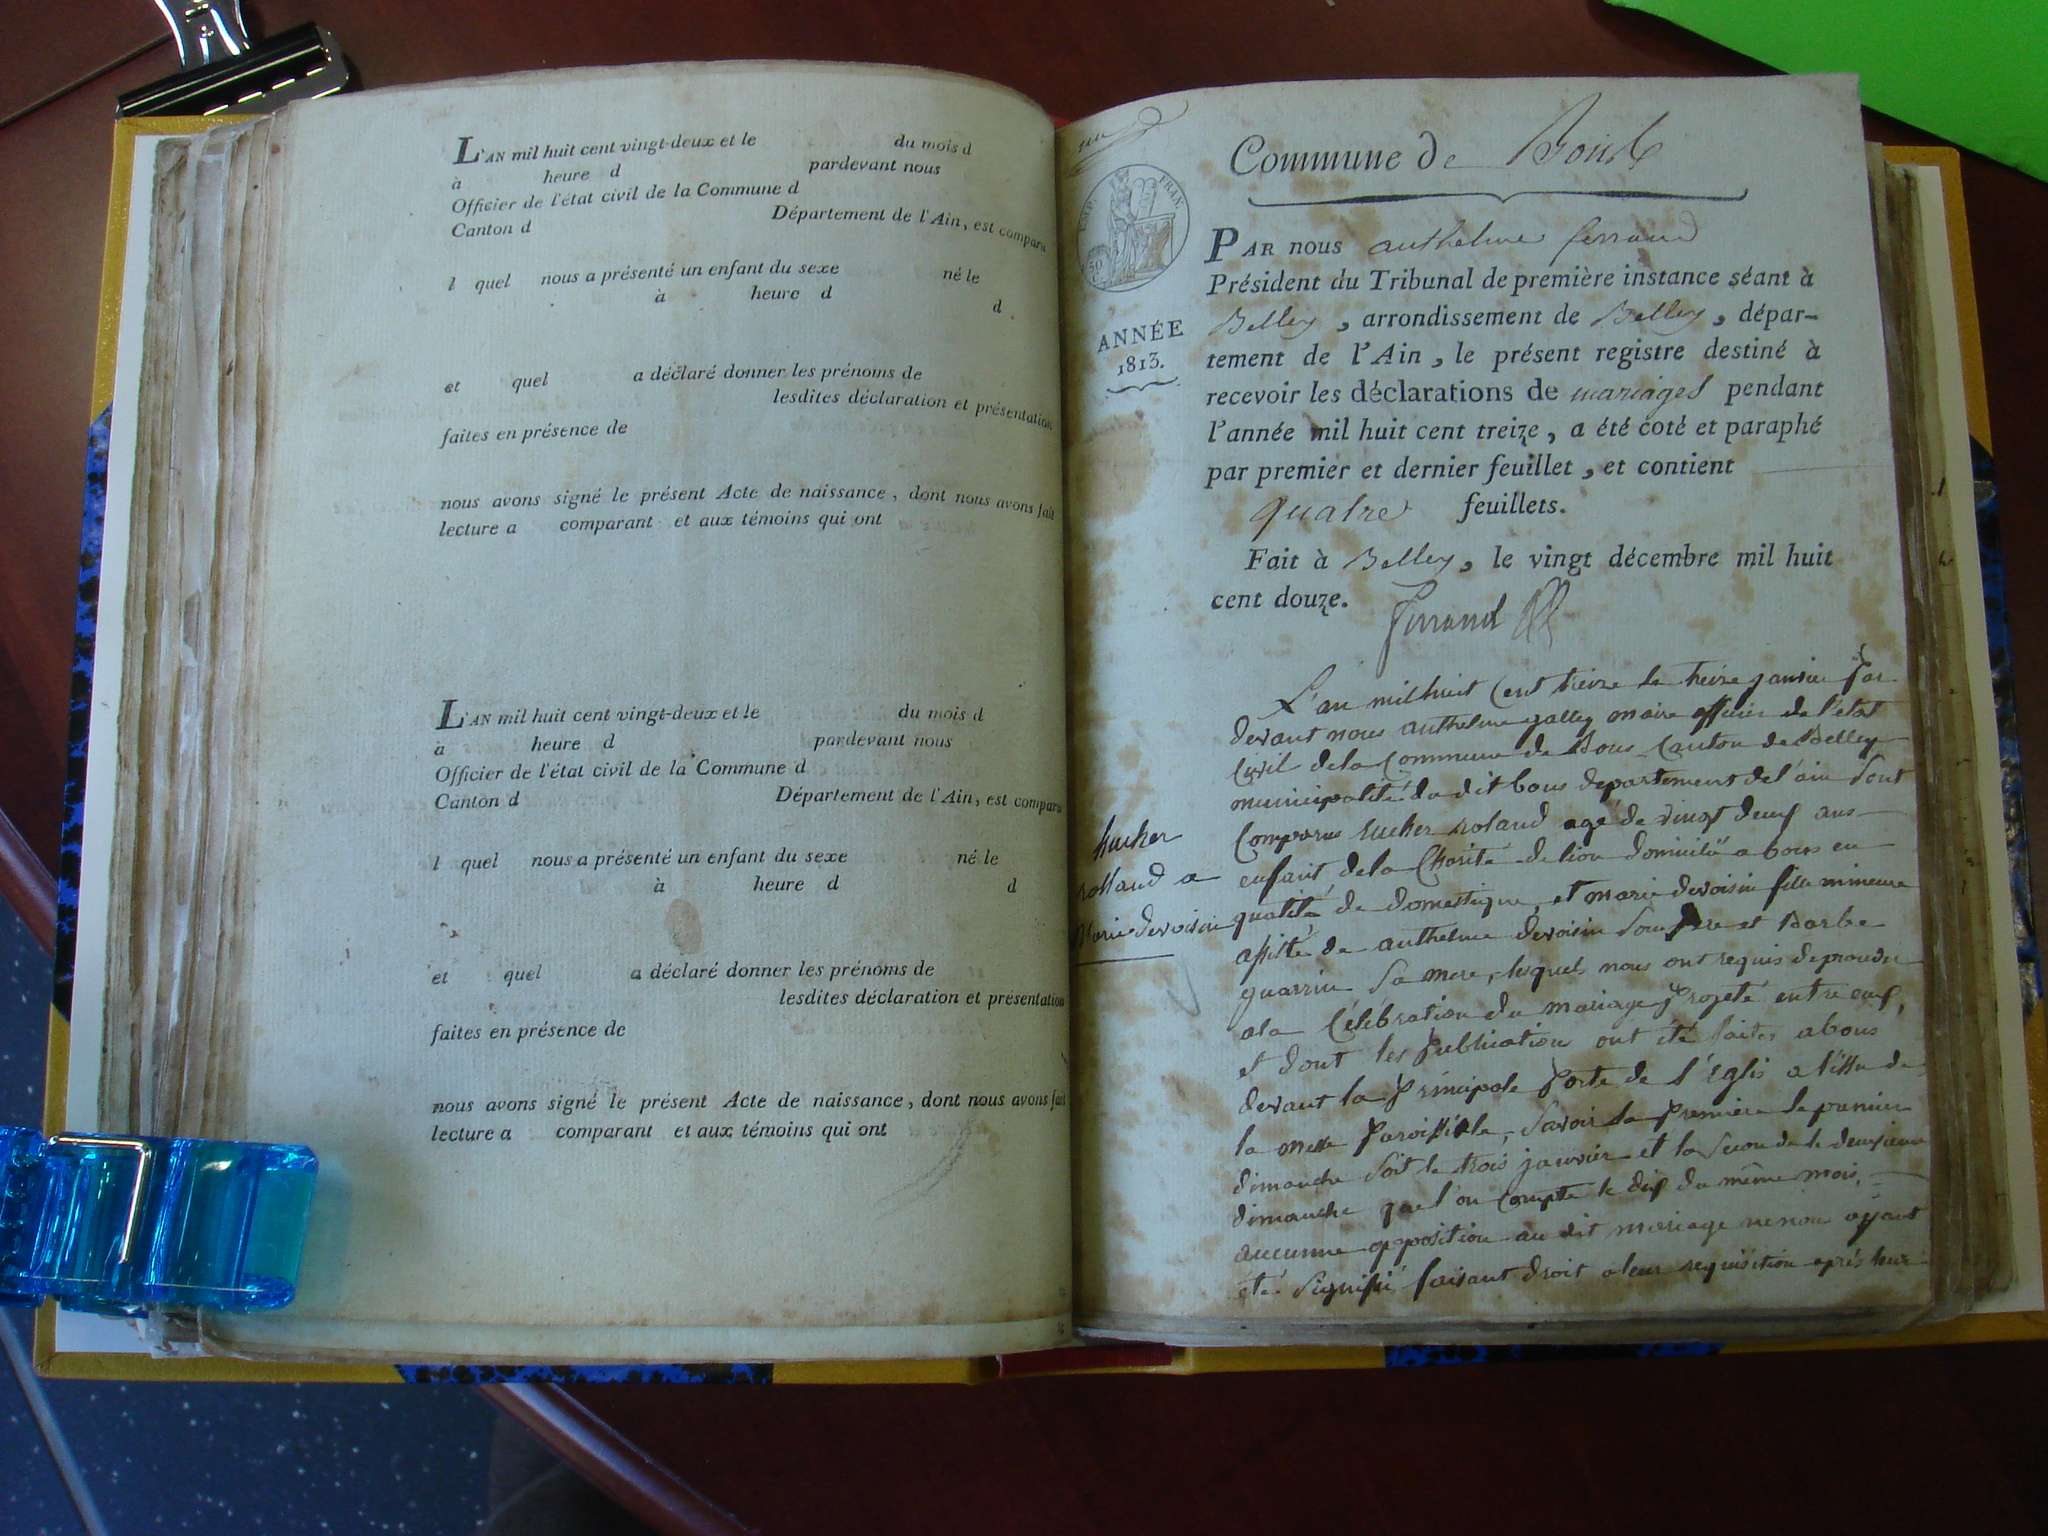 L'AN mil huit cent vingt-deux et le du mois d
à heure d pardevant nous
Officier de l'état civil de la Commune d
Canton d Département de l'Ain, est comparu
l quel nous a présenté un enfant du sexe né le
à heure d d
et quel a déclaré donner les prénoms de
lesdites déclaration et présentation
faites en présence de
nous avons signé le présent Acte de naissance, dont nous avons fait
lecture a comparant et aux témoins qui ont
L'AN mil huit cent vingt-deux et le du mois d
à heure d pardevant nous
Officier de l'état civil de la Commune d
Canton d Département de l'Ain, est comparu
l quel nous a présenté un enfant du sexe né le
à heure d d
et quel a déclaré donner les prénoms de
lesdites déclaration et présentation
faites en présence de
nous avons signé le présent Acte de naissance, dont nous avons fait
lecture a comparant et aux témoins qui ont
EMP. FRAN.
50
ANNÉE
1813.
Commune de
PAR nous anthelme ferrand
Président du Tribunal de première instance séant à
Belley, arrondissement de Belley, dépar-
tement de l'Ain, le présent registre destiné à
recevoir les déclarations de mariages pendant
l'année mil huit cent treize, a été coté et paraphé
par premier et dernier feuillet, et contient
quatre feuillets.
Fait à Belley, le vingt décembre mil huit
cent douze.
Ferrand
L'an mil huit Cent treize le treize janvier par
devant nous anthelme galley maire officier de l'état
Civil de la Commune de Bons Canton de Belley
municipalité du dit bons departement de l'ain Sont
Comparus rucher roland agé de vingt deuf ans
enfant de la Charité de lion domicilié a bons en
qualité de domestique, et marie devoisin fille mineure
assisté de anthelme devoisin Son pere et Barbe
guarrin Sa mere, lesquels nous ont requis de proceder
a la Célébration du mariage Projeté entre eux,
et dont les Publication ont été faites a bons
devant la Principale Porte de l'Eglis a l'issu de
la messe Paroissiale, Savoir la Premiere le premier
dimanche Soit le trois janvier et la Seconde le deuxieme
dimanche que l'on Compte le dix du même mois,
aucunne opposition au dit mariage ne nou ayant
eté Signifié faisant droit a leur requisition aprés leur
rucher
rolland a
Marie devoisin